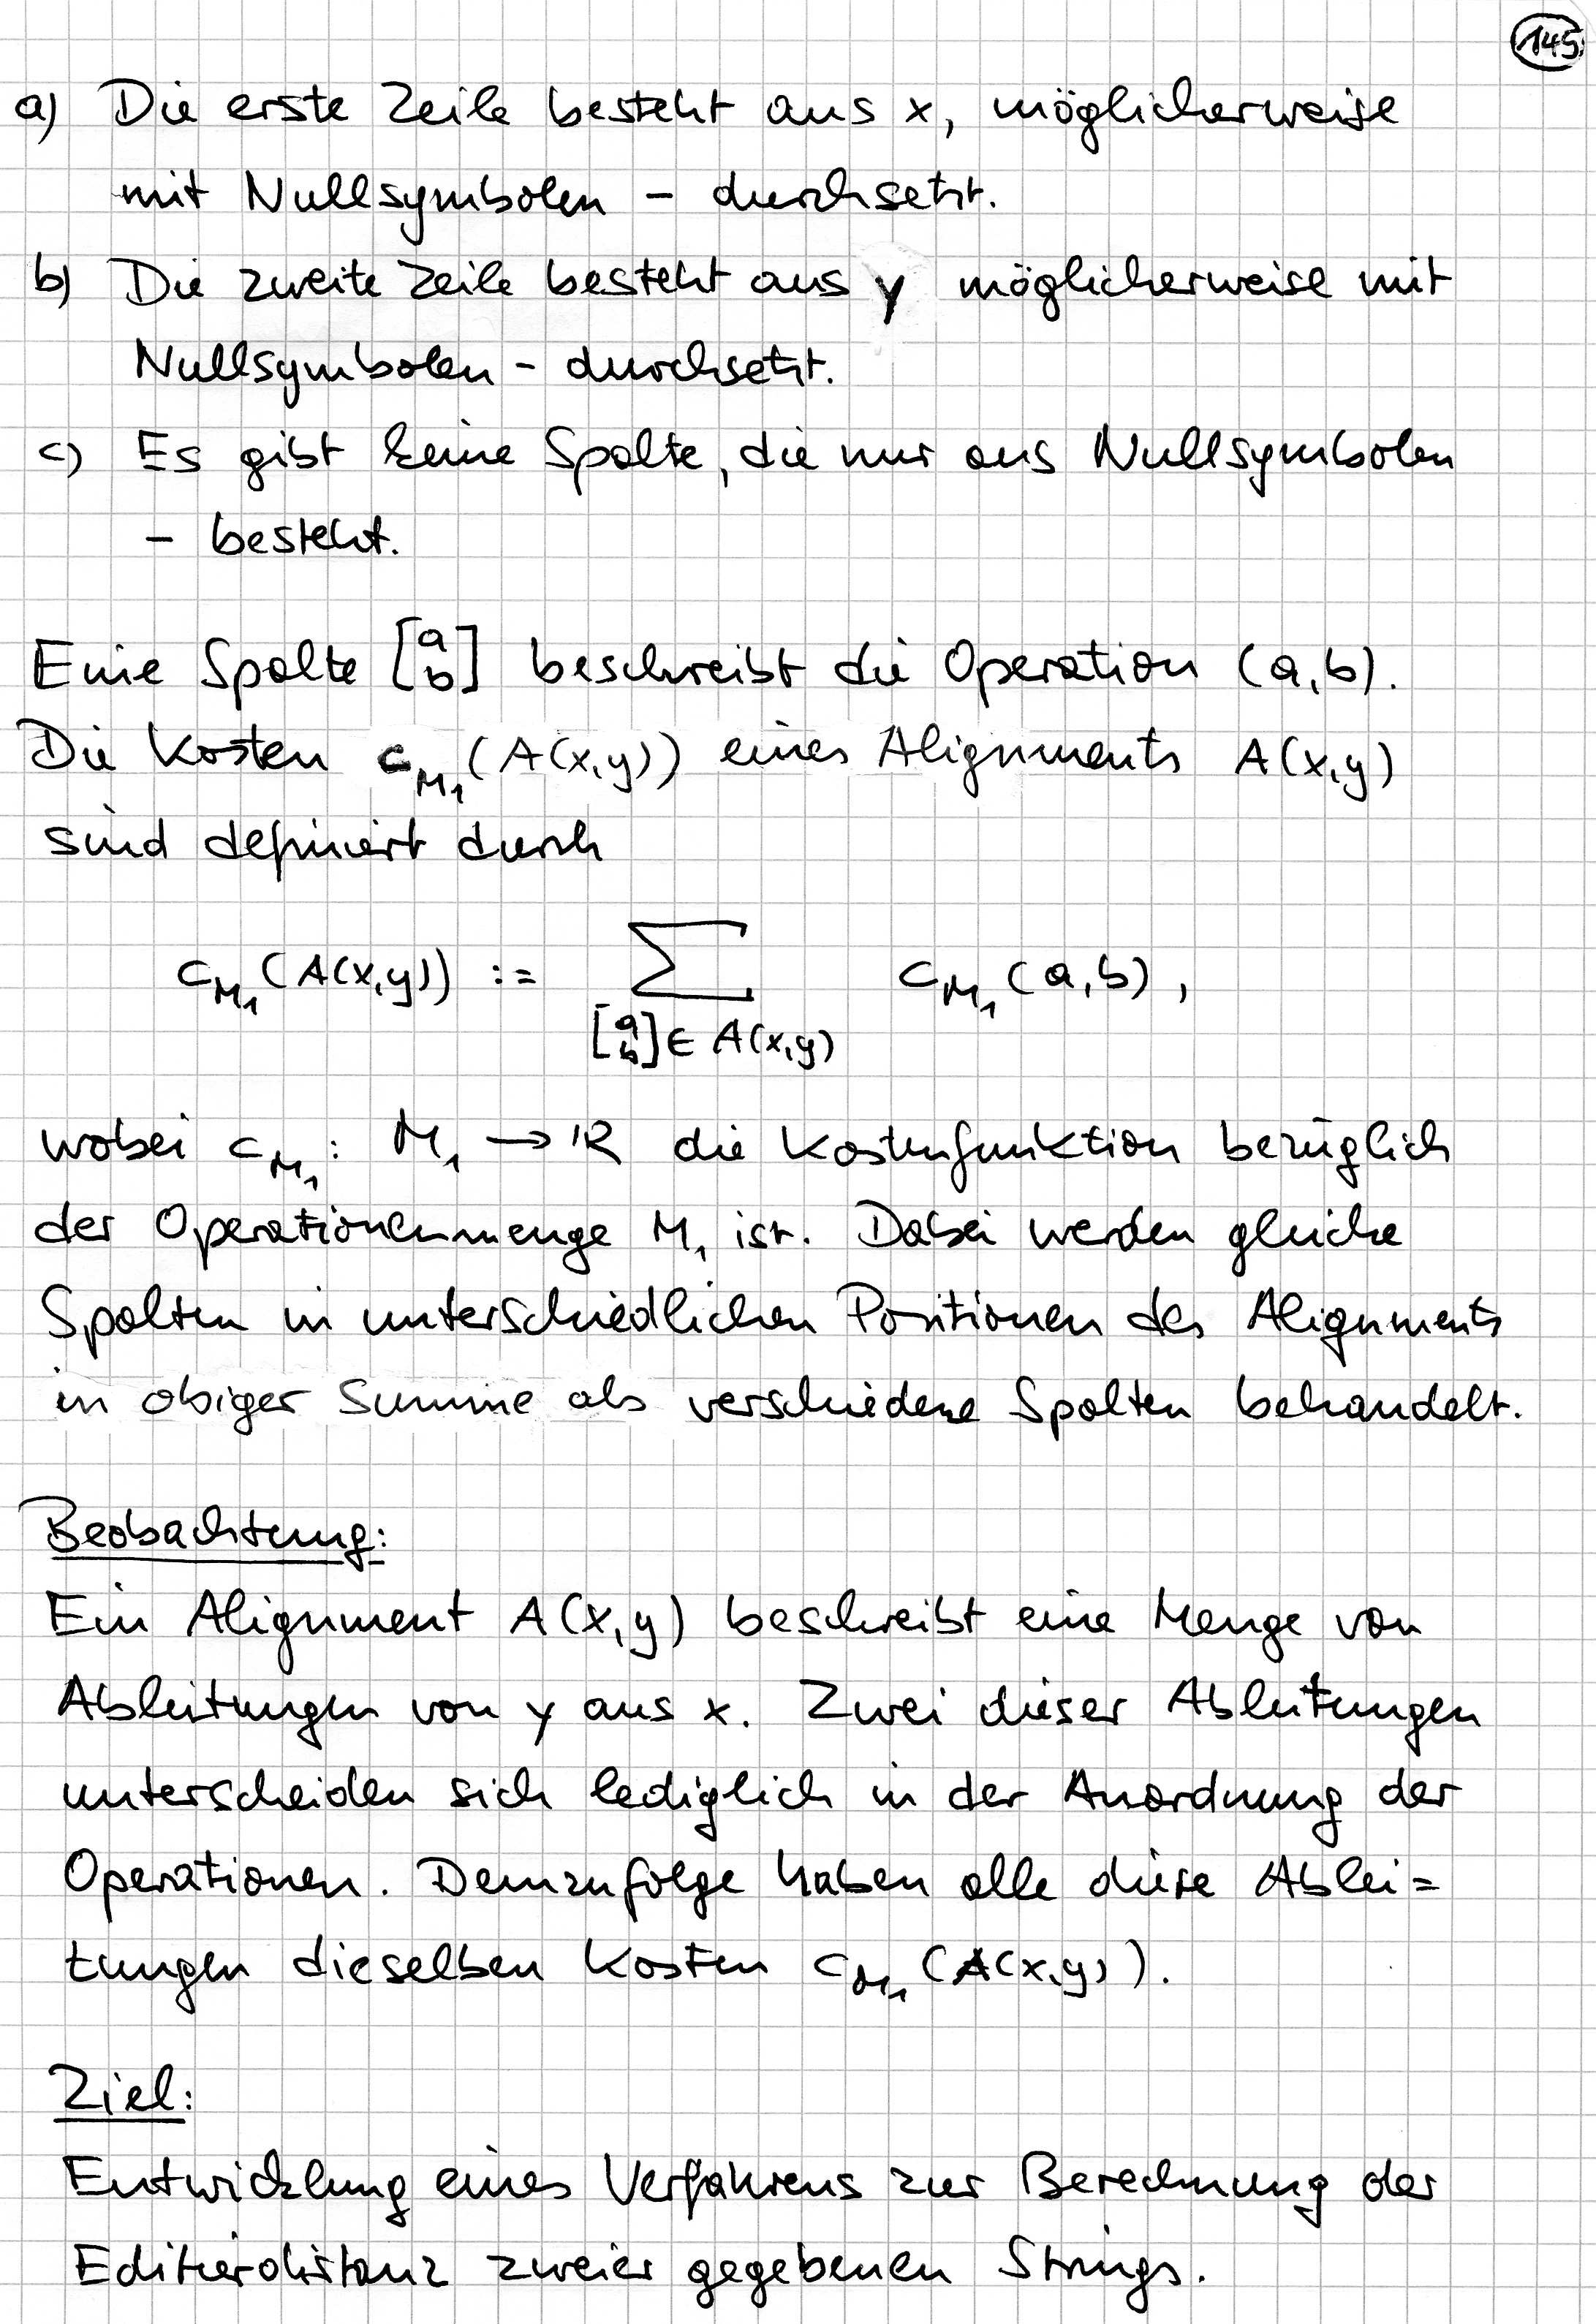 145
a) Die erste Zeile besteht aus x, möglicherweise
mit Nullsymbolen – durchsetzt.
b) Die zweite Zeile besteht aus y möglicherweise mit
Nullsymbolen – durchsetzt.
c) Es gibt keine Spalte, die nur aus Nullsymbolen
– besteht.
Eine Spalte [a b] beschreibt die Operation (a,b).
Die Kosten c_{M_1}(A(x,y)) eines Alignments A(x,y)
sind definiert durch
c_{M_1}(A(x,y)) := ∑ c_{M_1}(a,b),
[a b] ∈ A(x,y)
wobei c_{M_1}: M_1 → ℝ die Kostenfunktion bezüglich
der Operationenmenge M_1 ist. Dabei werden gleiche
Spalten in unterschiedlichen Positionen des Alignments
in obiger Summe als verschiedene Spalten behandelt.
Beobachtung:
Ein Alignment A(x,y) beschreibt eine Menge von
Ableitungen von y aus x. Zwei dieser Ableitungen
unterscheiden sich lediglich in der Anordnung der
Operationen. Demzufolge haben alle diese Ablei=
tungen dieselben Kosten c_{M_1}(A(x,y)).
Ziel:
Entwicklung eines Verfahrens zur Berechnung der
Editierdistanz zweier gegebenen Strings.